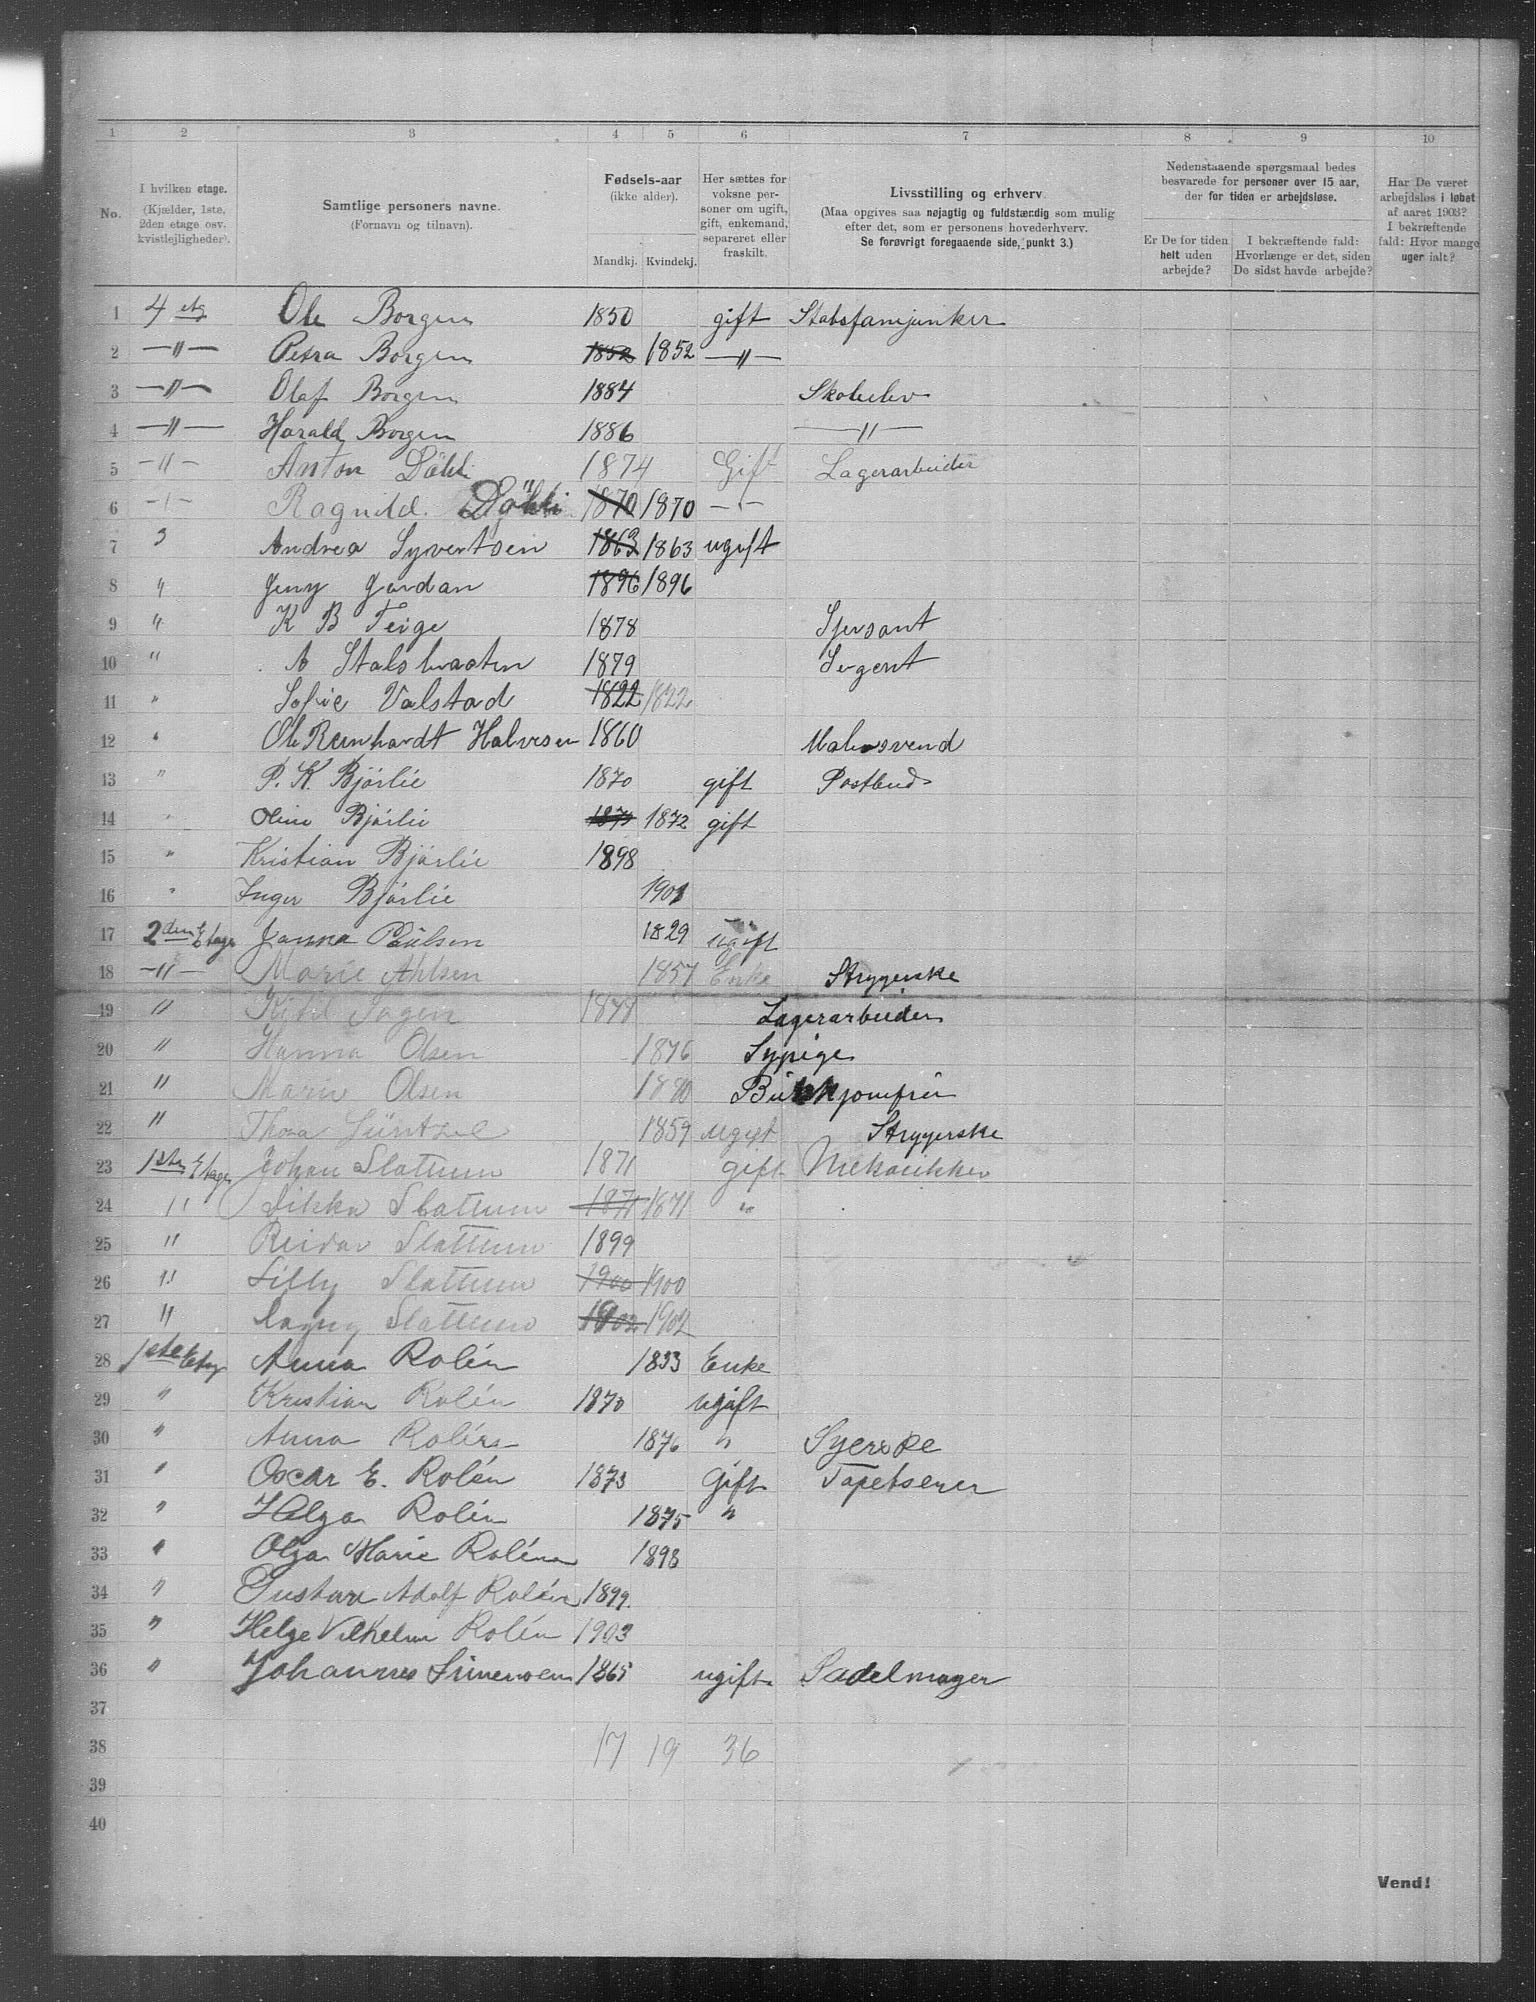 1 2 3 4 5 6 7 8 9 10
No. I hvilken etage. (Kjælder, 1ste, 2den etage osv. kvistlejligheder). Samtlige personers navne. (Fornavn og tilnavn). Fødsels-aar (ikke alder). Mandkj. Kvindekj. Her sættes for voksne personer om ugift, gift, enkemand, separeret eller fraskilt. Livsstilling og erhverv. (Maa opgives saa nøjagtig og fuldstændig som mulig efter det, som er personens hovederhverv. Se forøvrigt foregaaende side, punkt 3.) Nedenstaaende spørgsmaal bedes besvarede for personer over 15 aar, der for tiden er arbejdsløse. Er De for tiden helt uden arbejde? I bekræftende fald: Hvorlænge er det, siden De sidst havde arbejde? Har De været arbejdsløs i løbet af aaret 1903? I bekræftende fald: Hvor mange uger ialt?
1 4 etg Ole Borgen 1850 gift Stabsfanejunker
2 —"— Petra Borgen 1852 1852 —"—
3 —"— Olaf Borgen 1884 Skoleelev
4 —"— Harald Borgen 1886 —"—
5 —"— Anton Döhli 1874 Gift Lagerarbeider
6 —"— Ragnild Döhli 1870 1870 —"—
7 3 Andrea Syvertsen 1863 1863 ugift
8 " Jeny Jordan 1896 1896
9 " K B Teige 1878 Sjersant
10 " A 1879 Sergent
11 " Sofie Valstad 1822 1822
12 " Ole Reinhardt Halvesen 1860 Malersvend
13 " P. K. Bjørlie 1870 gift Postbud
14 " Oline Bjørlie 1872 gift
15 " Kristian Bjørlie 1898
16 " Inger Bjørlie 1901
17 2den Etage Janna Paulsen 1829 ugift
18 —"— Marie Ahlsen 1857 Enke Strygerske
19 " Ketil Lagerarbeider
20 " Hanna Olsen 1876 Sypige
21 " Marie Olsen 1880
22 " Thora Güntzel 1859 ugift Strygerske
23 1ste Etage Johan Slattum 1871 gift Mekanikker
24 " Slattum 1871 1871 "
25 " Reidar Slattum 1899
26 " Lilly Slattum 1900 1900
27 " Dagny Slattum 1902 1902
28 1ste Etag Anna Rolén 1833 Enke
29 " Kristian Rolén 1870 ugift
30 " Anna Rolén 1876 " Syerske
31 " Oscar E. Rolén 1873 Gift Tapetserer
32 " Helga Rolén 1875 "
33 " Olga Marie Rolén 1898
34 " Gustav Adolf Rolén 1899
35 " Helge Vilhelm Rolén 1903
36 " Johannes Simensen 1865 ugift Sadelmager
37
38 17 19 36
39
40
Vend!